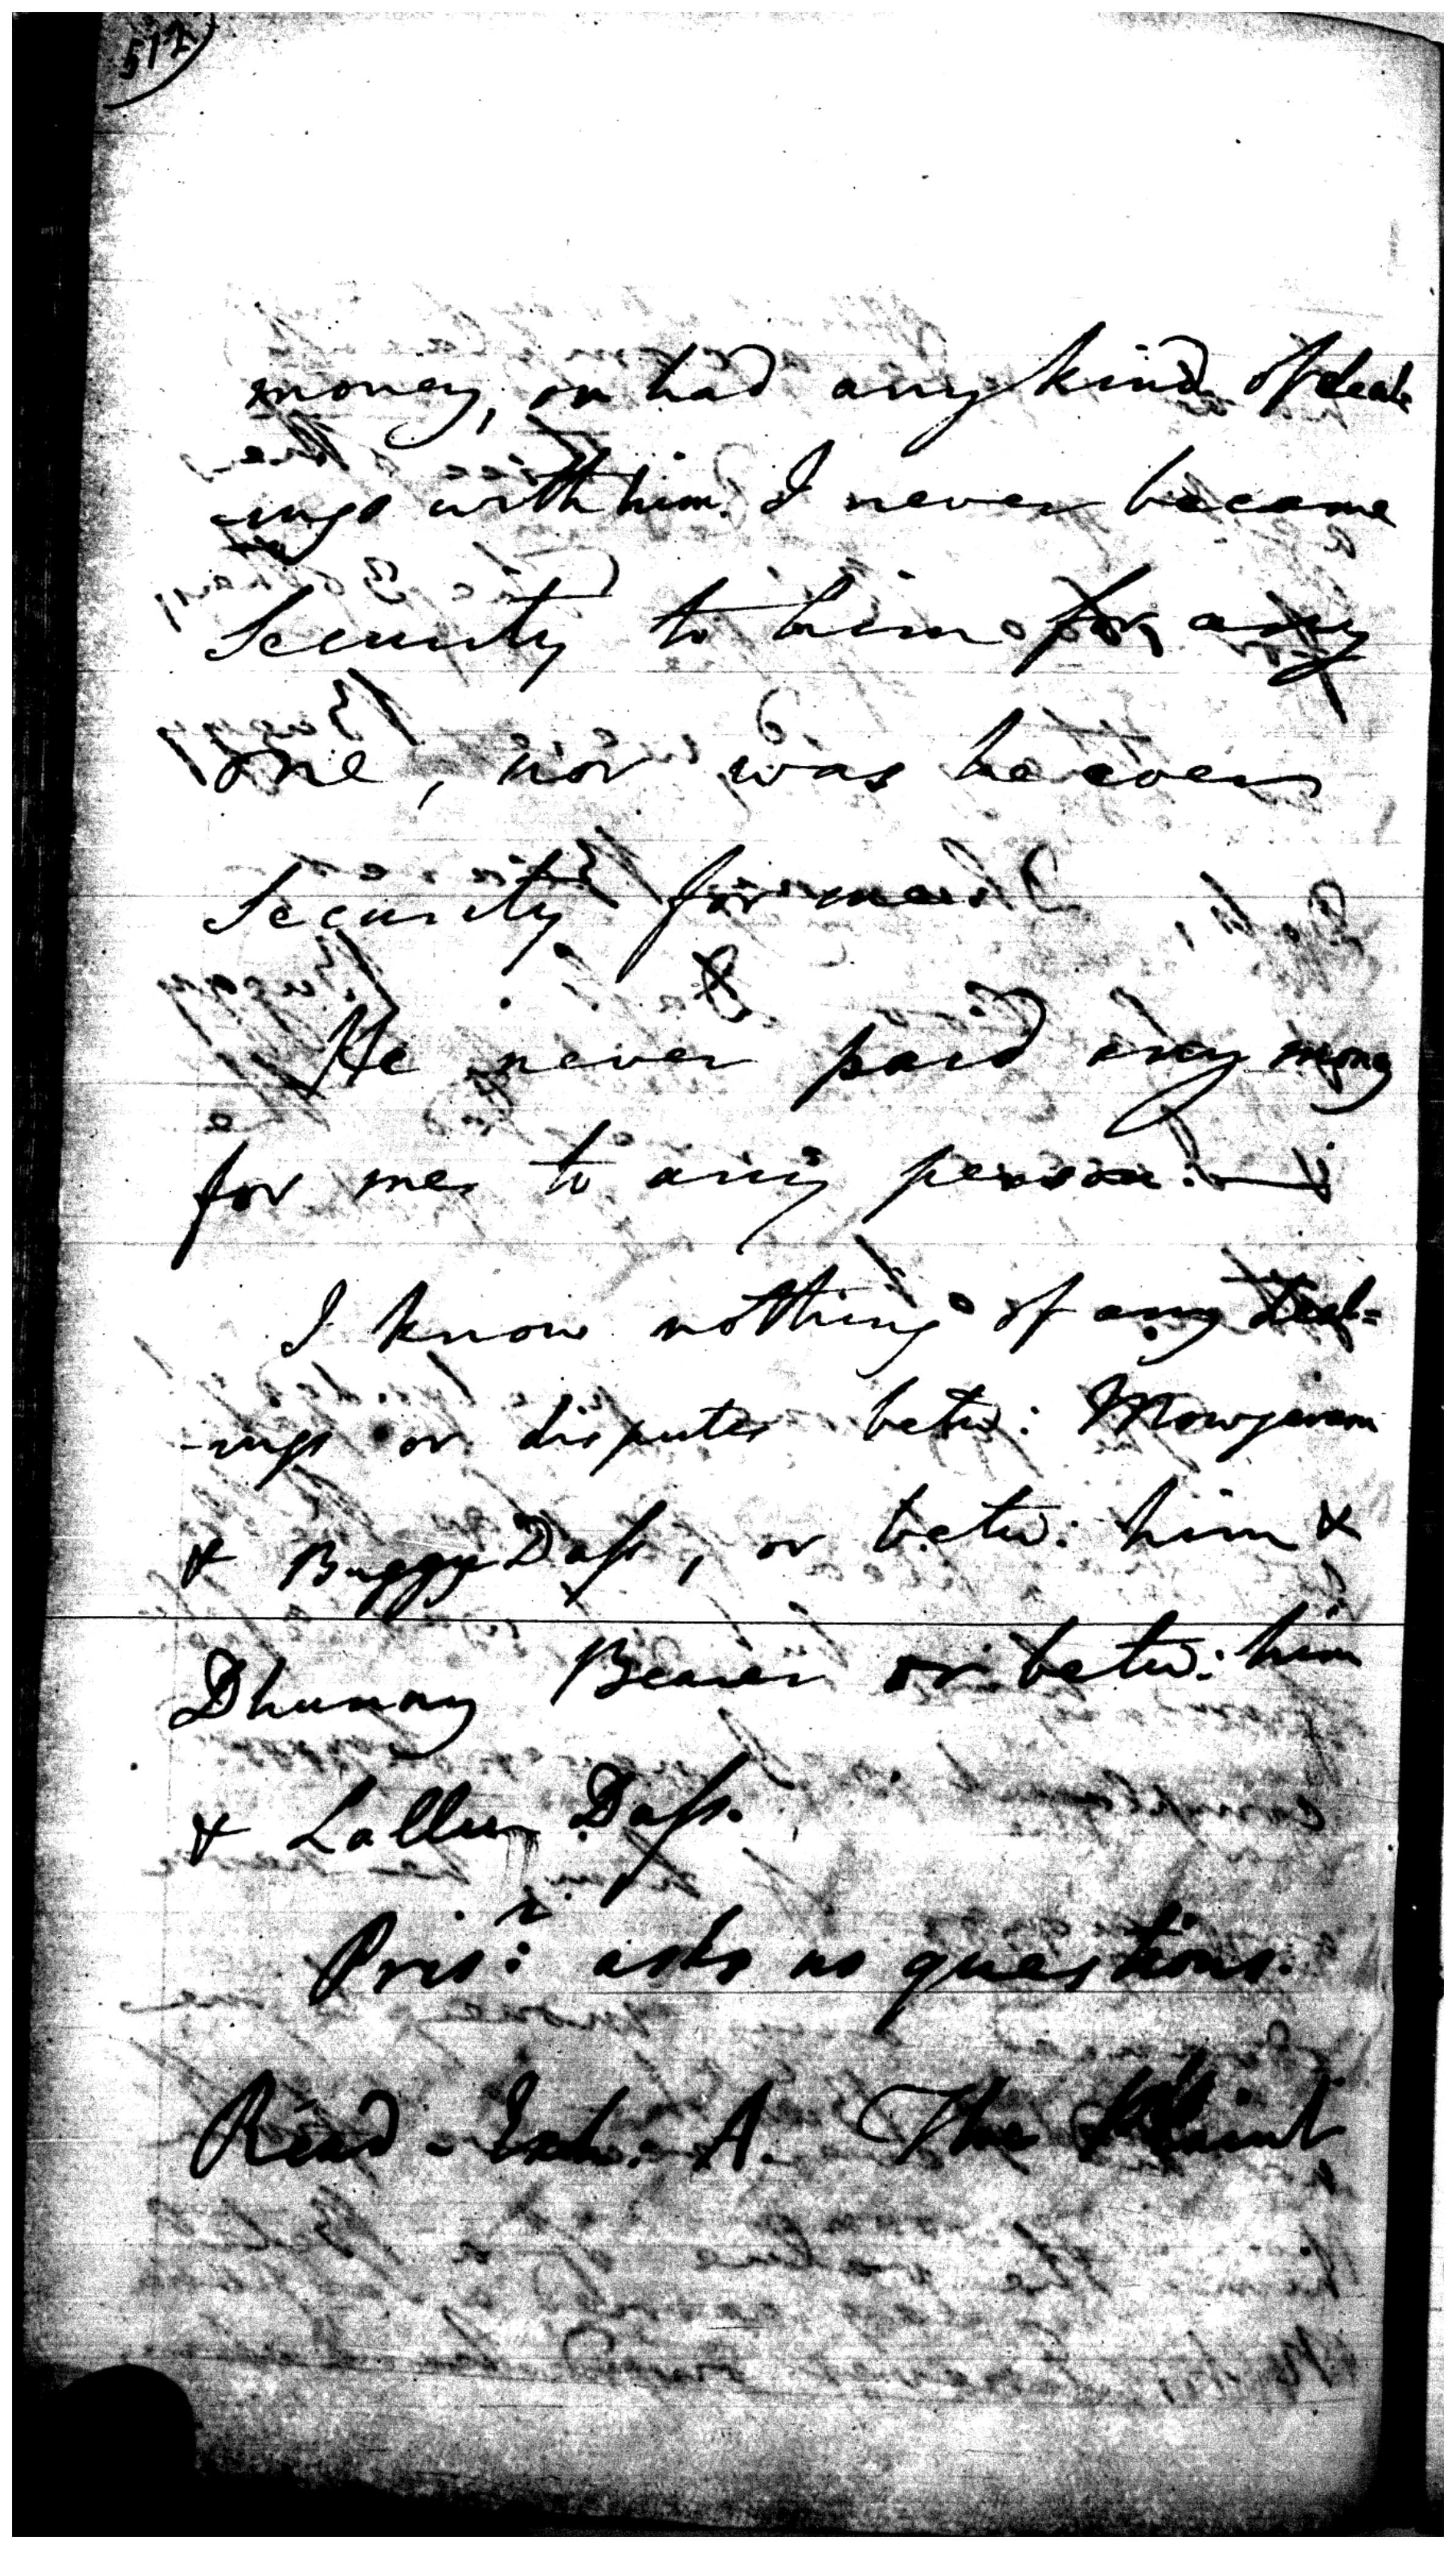 512
money, or had any kind of deal-
-ings with him. I never became
Security to him for any
one, nor was he ever
Security for me.
He never paid any money
for me to any person.
I know nothing of any deal-
-ings or disputes betw: Mowjeram
& Buggy Dass, or betw: him &
Dhunny Bearer or betw: him
& Lalloo Dass.
Pris:r asks no questions.
Read - Exh. A. The Plaint